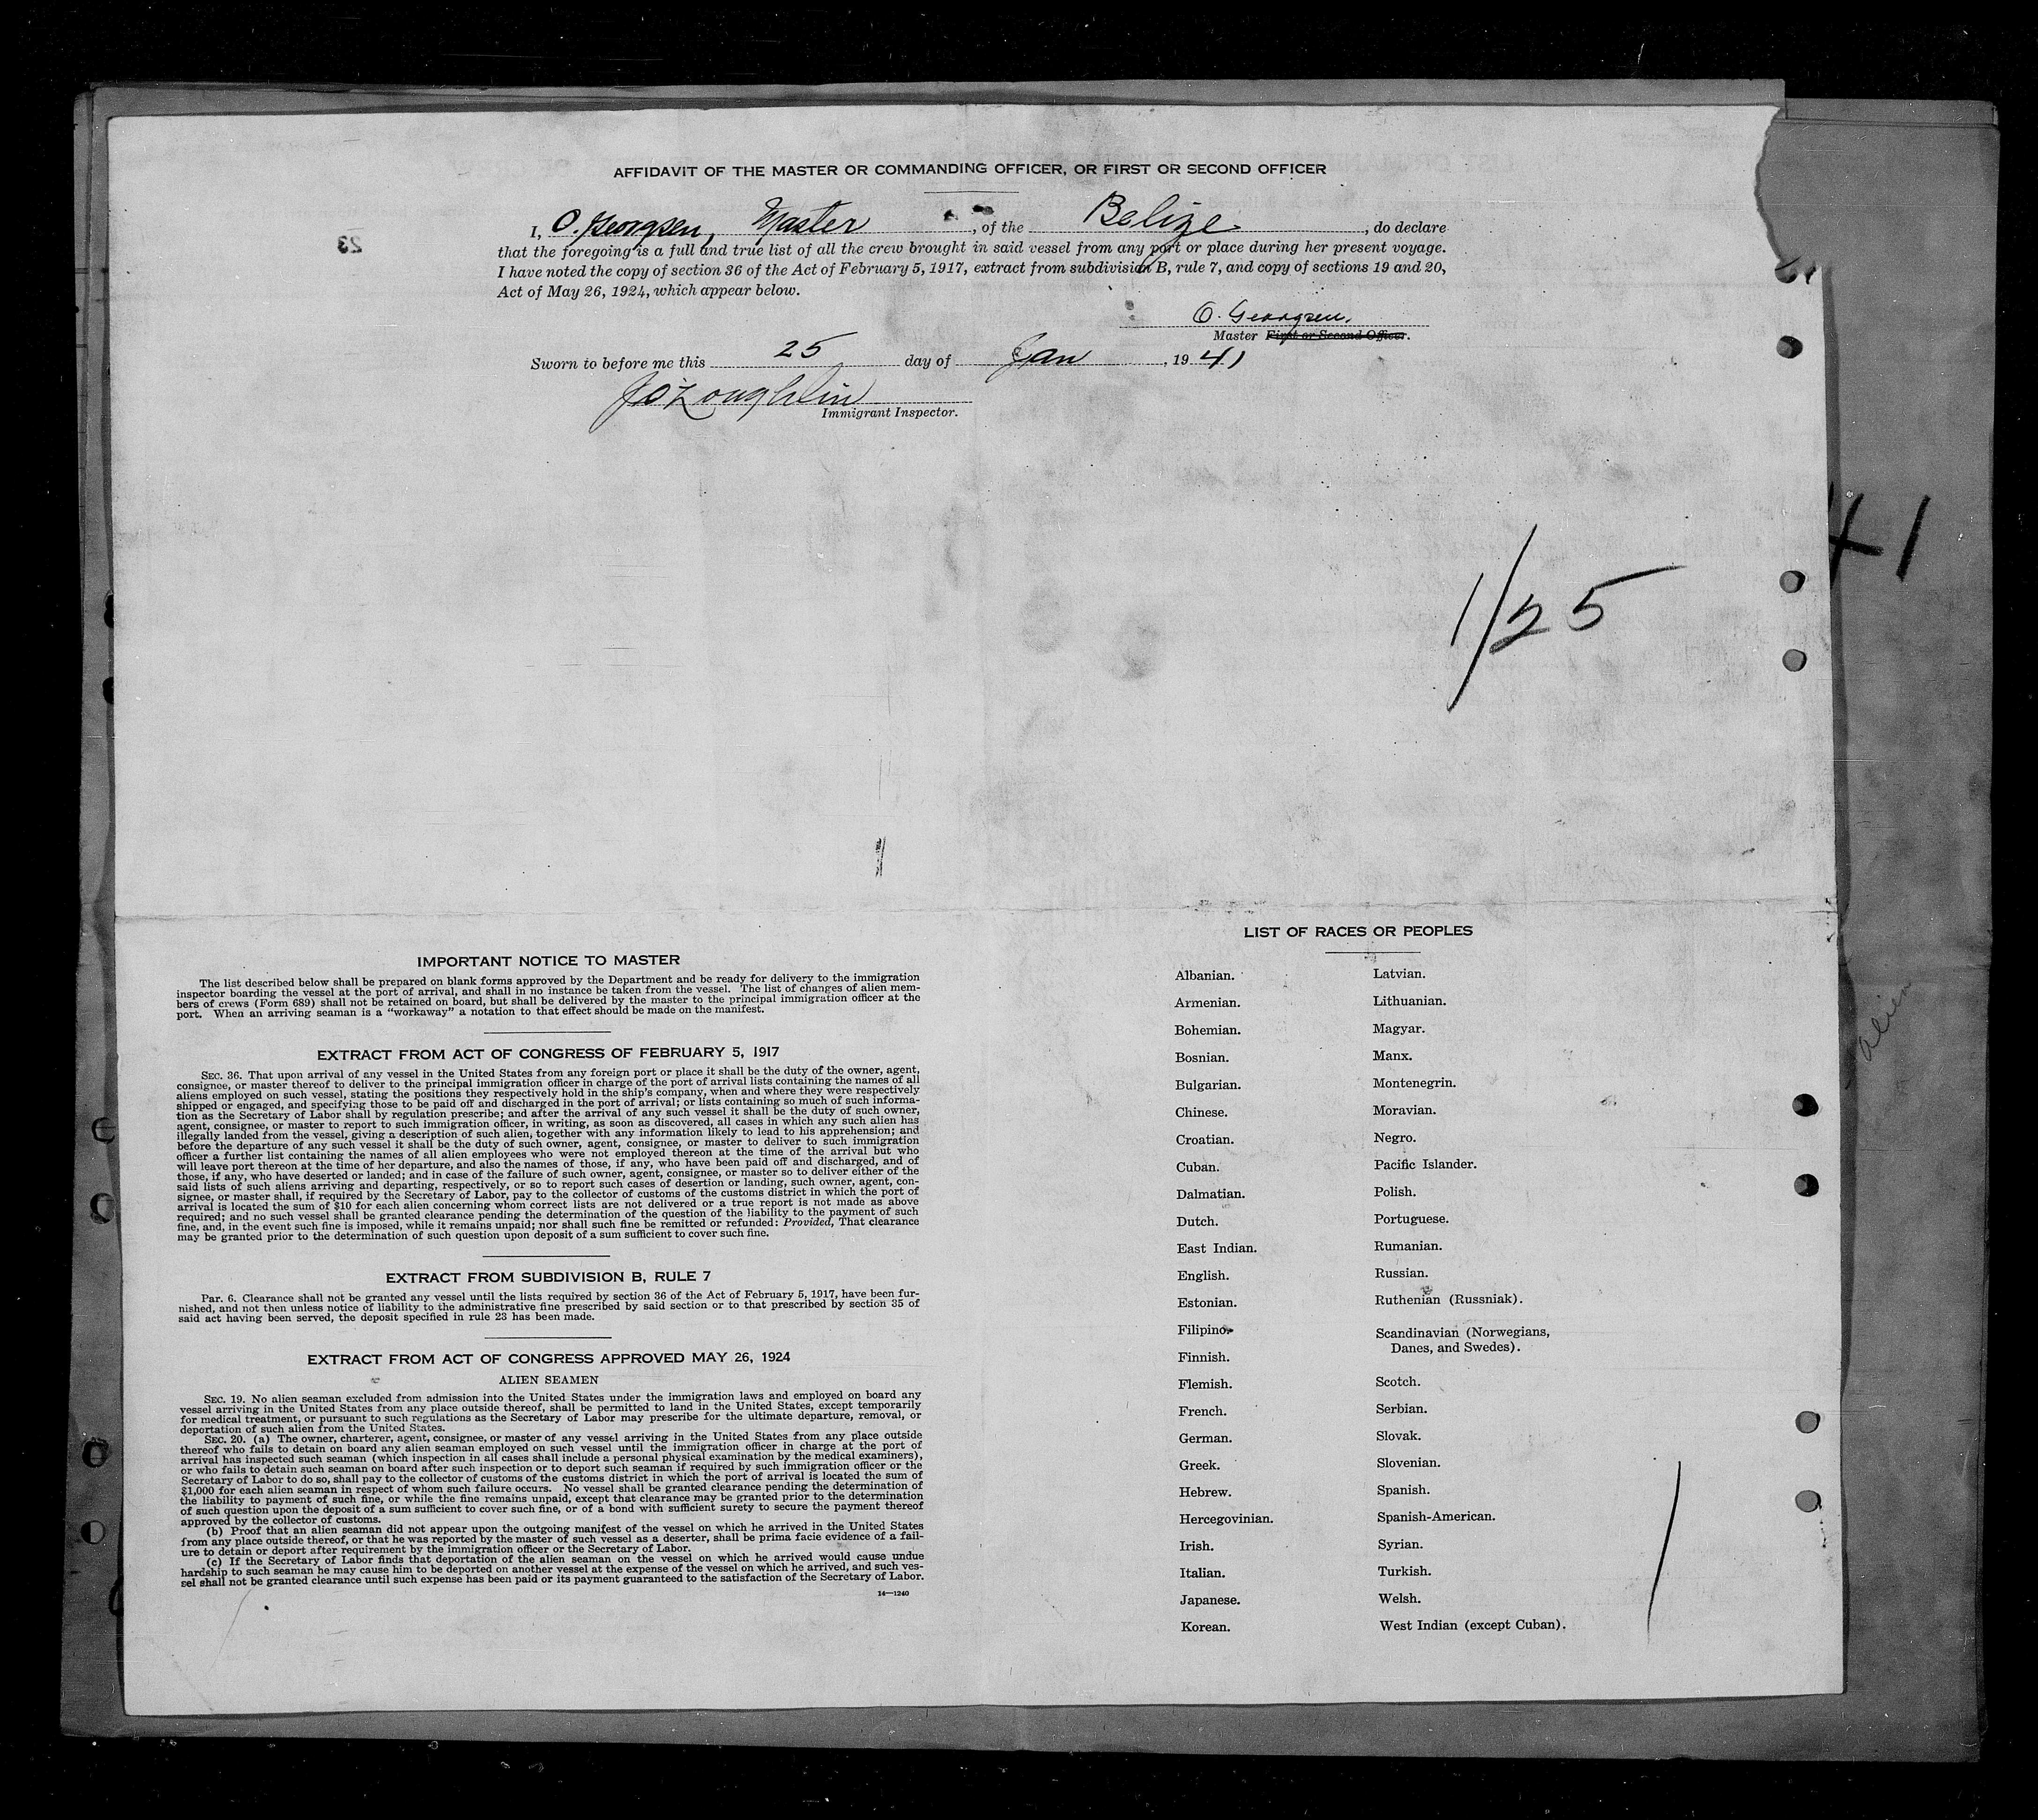 AFFIDAVIT OF THE MASTER OR COMMANDING OFFICER, OR FIRST OR SECOND OFFICER
I, O. Georgsen, Master, of the Belize, do declare
that the foregoing is a full and true list of all the crew brought in said vessel from any port or place during her present voyage.
I have noted the copy of section 36 of the Act of February 5, 1917, extract from subdivision B, rule 7, and copy of sections 19 and 20,
Act of May 26, 1924, which appear below.
O. Georgsen.
Master First or Second Officer.
Sworn to before me this 25 day of Jan, 1941
J O'Loughlin
Immigrant Inspector.
23
41
1/25
IMPORTANT NOTICE TO MASTER
The list described below shall be prepared on blank forms approved by the Department and be ready for delivery to the immigration
inspector boarding the vessel at the port of arrival, and shall in no instance be taken from the vessel. The list of changes of alien mem-
bers of crews (Form 689) shall not be retained on board, but shall be delivered by the master to the principal immigration officer at the
port. When an arriving seaman is a "workaway" a notation to that effect should be made on the manifest.
EXTRACT FROM ACT OF CONGRESS OF FEBRUARY 5, 1917
SEC. 36. That upon arrival of any vessel in the United States from any foreign port or place it shall be the duty of the owner, agent,
consignee, or master thereof to deliver to the principal immigration officer in charge of the port of arrival lists containing the names of all
aliens employed on such vessel, stating the positions they respectively hold in the ship's company, when and where they were respectively
shipped or engaged, and specifying those to be paid off and discharged in the port of arrival; or lists containing so much of such informa-
tion as the Secretary of Labor shall by regulation prescribe; and after the arrival of any such vessel it shall be the duty of such owner,
agent, consignee, or master to report to such immigration officer, in writing, as soon as discovered, all cases in which any such alien has
illegally landed from the vessel, giving a description of such alien, together with any information likely to lead to his apprehension; and
before the departure of any such vessel it shall be the duty of such owner, agent, consignee, or master to deliver to such immigration
officer a further list containing the names of all alien employees who were not employed thereon at the time of the arrival but who
will leave port thereon at the time of her departure, and also the names of those, if any, who have been paid off and discharged, and of
those, if any, who have deserted or landed; and in case of the failure of such owner, agent, consignee, or master so to deliver either of the
said lists of such aliens arriving and departing, respectively, or so to report such cases of desertion or landing, such owner, agent, con-
signee, or master shall, if required by the Secretary of Labor, pay to the collector of customs of the customs district in which the port of
arrival is located the sum of $10 for each alien concerning whom correct lists are not delivered or a true report is not made as above
required; and no such vessel shall be granted clearance pending the determination of the question of the liability to the payment of such
fine, and, in the event such fine is imposed, while it remains unpaid; nor shall such fine be remitted or refunded: Provided, That clearance
may be granted prior to the determination of such question upon deposit of a sum sufficient to cover such fine.
EXTRACT FROM SUBDIVISION B, RULE 7
Par. 6. Clearance shall not be granted any vessel until the lists required by section 36 of the Act of February 5, 1917, have been fur-
nished, and not then unless notice of liability to the administrative fine prescribed by said section or to that prescribed by section 35 of
said act having been served, the deposit specified in rule 23 has been made.
EXTRACT FROM ACT OF CONGRESS APPROVED MAY 26, 1924
ALIEN SEAMEN
SEC. 19. No alien seaman excluded from admission into the United States under the immigration laws and employed on board any
vessel arriving in the United States from any place outside thereof, shall be permitted to land in the United States, except temporarily
for medical treatment, or pursuant to such regulations as the Secretary of Labor may prescribe for the ultimate departure, removal, or
deportation of such alien from the United States.
SEC. 20. (a) The owner, charterer, agent, consignee, or master of any vessel arriving in the United States from any place outside
thereof who fails to detain on board any alien seaman employed on such vessel until the immigration officer in charge at the port of
arrival has inspected such seaman (which inspection in all cases shall include a personal physical examination by the medical examiners),
or who fails to detain such seaman on board after such inspection or to deport such seaman if required by such immigration officer or the
Secretary of Labor to do so, shall pay to the collector of customs of the customs district in which the port of arrival is located the sum of
$1,000 for each alien seaman in respect of whom such failure occurs. No vessel shall be granted clearance pending the determination of
the liability to payment of such fine, or while the fine remains unpaid, except that clearance may be granted prior to the determination
of such question upon the deposit of a sum sufficient to cover such fine, or of a bond with sufficient surety to secure the payment thereof
approved by the collector of customs.
(b) Proof that an alien seaman did not appear upon the outgoing manifest of the vessel on which he arrived in the United States
from any place outside thereof, or that he was reported by the master of such vessel as a deserter, shall be prima facie evidence of a fail-
ure to detain or deport after requirement by the immigration officer or the Secretary of Labor.
(c) If the Secretary of Labor finds that deportation of the alien seaman on the vessel on which he arrived would cause undue
hardship to such seaman he may cause him to be deported on another vessel at the expense of the vessel on which he arrived, and such ves-
sel shall not be granted clearance until such expense has been paid or its payment guaranteed to the satisfaction of the Secretary of Labor.
14—1240
LIST OF RACES OR PEOPLES
Albanian.
Armenian.
Bohemian.
Bosnian.
Bulgarian.
Chinese.
Croatian.
Cuban.
Dalmatian.
Dutch.
East Indian.
English.
Estonian.
Filipino.
Finnish.
Flemish.
French.
German.
Greek.
Hebrew.
Hercegovinian.
Irish.
Italian.
Japanese.
Korean.
Latvian.
Lithuanian.
Magyar.
Manx.
Montenegrin.
Moravian.
Negro.
Pacific Islander.
Polish.
Portuguese.
Rumanian.
Russian.
Ruthenian (Russniak).
Scandinavian (Norwegians,
Danes, and Swedes).
Scotch.
Serbian.
Slovak.
Slovenian.
Spanish.
Spanish-American.
Syrian.
Turkish.
Welsh.
West Indian (except Cuban).
alien